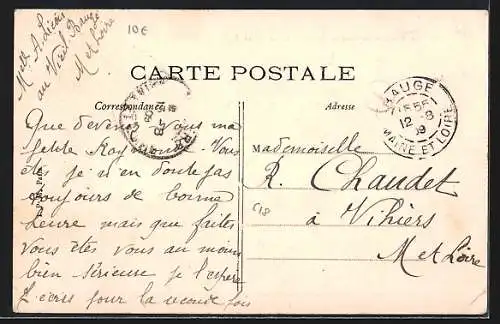 Mlle A. Licois
au Vieil Baugé
M et Loire
10€
CARTE POSTALE
Correspondance
Adresse
BAUGE
15 55
12 -8
09
MAINE ET LOIRE
Que devenez-vous ma
petite Raymonde. Vous
êtes je n'en doute pas
toujours de bonne
heure mais que faites
vous êtes vous au moins
bien sérieuse je l'espère
J'écris pour la seconde fois
Mademoiselle
R. Chaudet
à Vihiers
M et Loire
C18